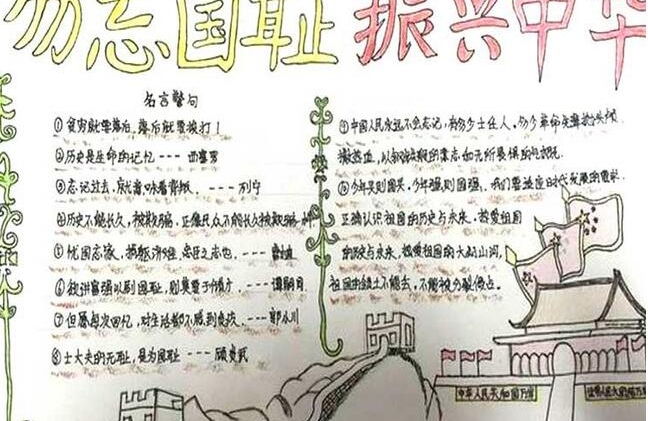 勿忘国耻 振兴中华
名言警句
①贫穷就要落后，落后就要挨打！
②历史是生命的记忆 --- 西塞罗
③忘记过去，就意味着背叛． --- 列宁
④历史不能长久，被欺骗，正像民众不能长久被欺骗
⑤忧国忘家，捐躯济难，忠臣之志也． ---
⑥欲讲富强以刷国耻，则莫要于储才 --- 谭嗣同
⑦但愿每次回忆，对生活都不感到负疚． --- 郭小川
⑧士大夫的无耻，是为国耻 --- 顾炎武
⑦中国人民永远不会忘记，有多少士仁人，多少革命先辈抛头颅
洒热血，以
⑧少年兴则国兴，少年强则国强，我们要适应时代发展的要求．
正确认识祖国的历史与未来．热爱祖国
的历史与未来，热爱祖国的大好山河，
祖国的领土不能丢，不能被分裂侵占。
中华人民共和国万岁
世界人民大团结万岁